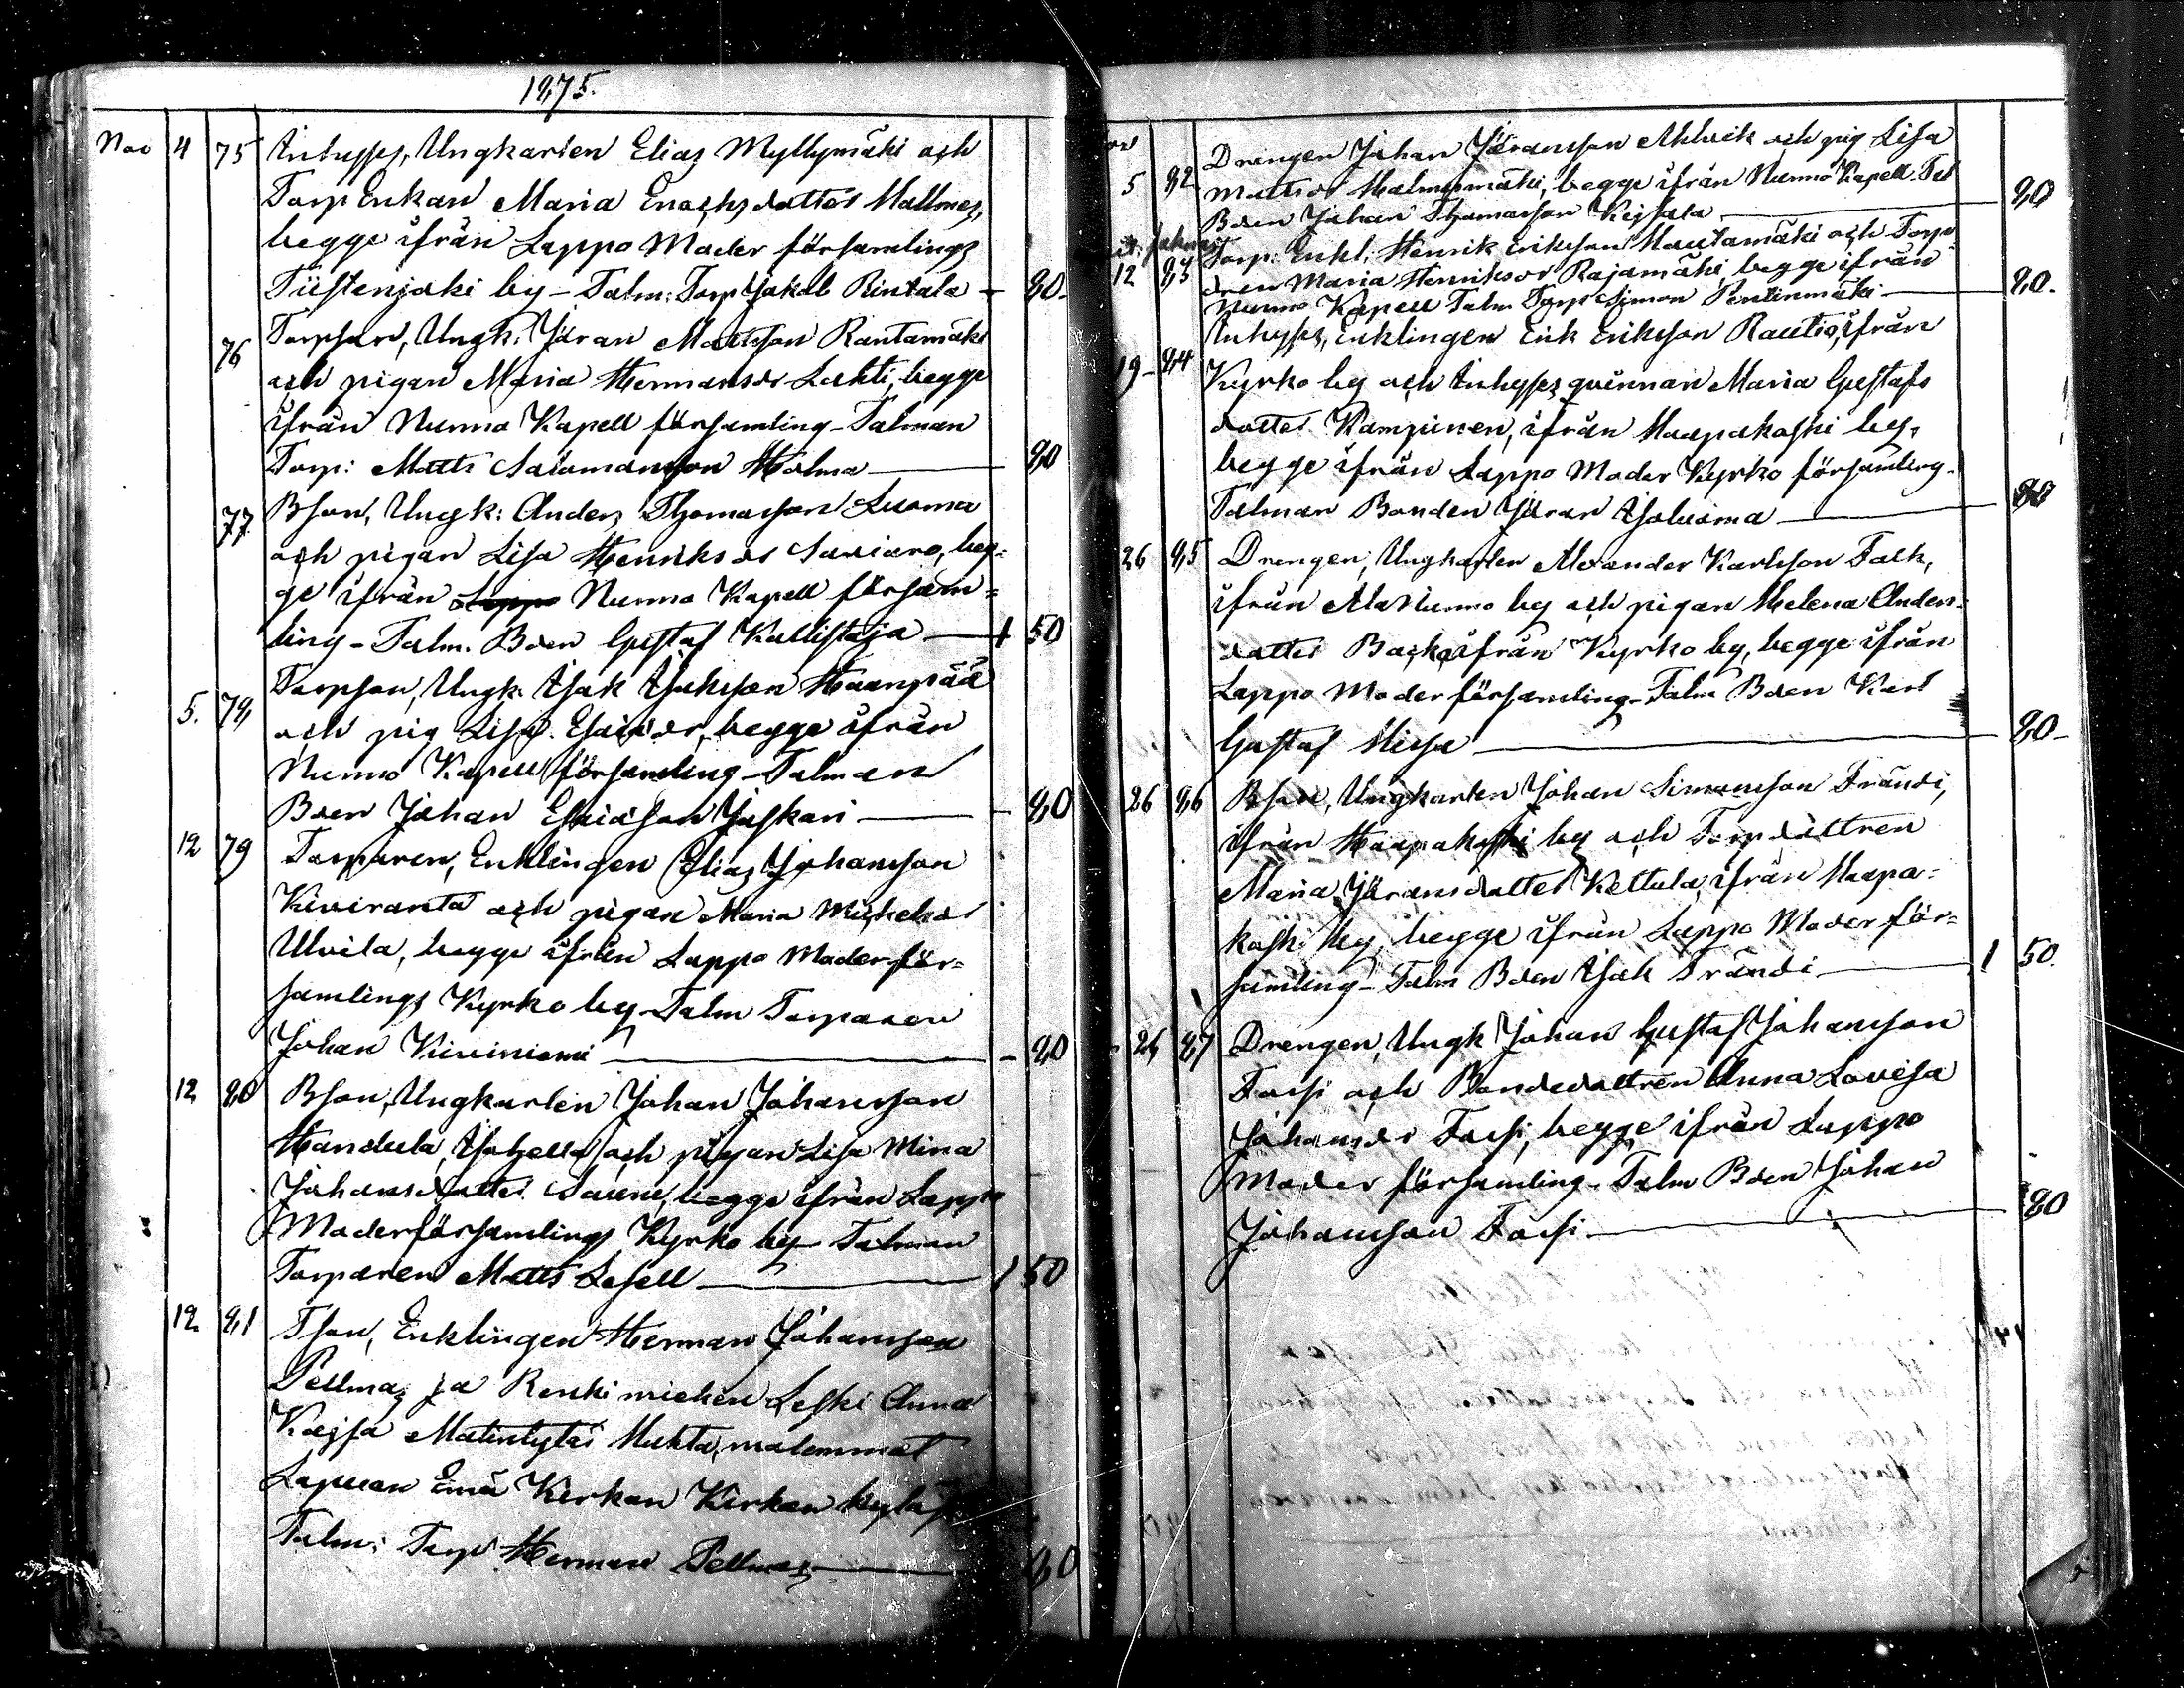 1875.
Nov 4 75 Inhyses, Ungkarlen Elias Myllymäki och
Torp Enkan Maria Enochsdotter Mallmes,
begge ifrån Lappo Moder församlings
Tiistenjoki by - Talm: Torp Jakob Rintala - 80.
76 Torpson, Ungk: Jöran Mattsson Rantamäki
och pigan Maria Hermansdr Lahti, begge
ifrån Nurmo Kapell församling - Talman
Torp: Matts Salomonsson Holma 80
77 Bson, Ungk: Anders Thomasson Luoma
och pigan Lisa Henriksdr Saviaro, beg=
ge ifrån Lappo Nurmo Kapell försam=
ling - Talm. Bden Gustaf Kallistaja 1 50
5. 78 Torpson, Ungk. Isak Isaksson Haanpää
och pig Lisa Esaiædr, begge ifrån
Nurmo Kapell församling - Talman
Bden Johan Esaiasson Juskari - 80
12 79 Torparen, Enklingen Elias Johansson
Kiviranta och pigan Maria Michelsdr
Ulvila, begge ifrån Lappo Moder för=
samlings Kyrko by - Talm Torparen
Johan Kiviniemi - 80
12 80 Bson, Ungkarlen Johan Johansson
Handula, och pigan Lisa Mina
Johansdotter begge ifrån Lappo
Moderförsamlings Kyrko by - Talman
Torparen Matts Lesell 1 50
12. 81 Tson, Enklingen Herman Johansson
Pellmas ja Renki miehen Leski Anna
Kajsa Matintytär Muhta, molemmat
Lapuan Emä Kirkon Kirkon kylästä
Talm: Torp Herman Pellmas 80
5 82 Drengen Johan Jöransson Ahlvik och pig Lisa
Mattsdr Holmusmäki, begge ifrån Nurmo Kapell. Tal
Bden Johan Thomasson Keisala 80
12 83 Torp: Enkl: Henrik Eriksson Hautamäki och Torp
dren Maria Henriksdr Rajamäki, begge ifrån
Nurmo Kapell Talm Torp Simon Penttinmäki 80.
Inhyses, Enklingen Erik Eriksson Rautio, ifrån
19 - 84 Kyrko by och Inhyses qvinnan Maria Gustafs
dotter Kampinen, ifrån Haapakoski by,
begge ifrån Lappo Moder Kyrko församling -
Talman Bonden Jöran Isoluoma 80
26 85 Drengen, Ungkarlen Alexander Karlsson Falk,
ifrån Ala Nurmo by och pigan Helena Anders-
dotter Backa ifrån Kyrko by, begge ifrån
Lappo Moder församling - Talm Bden Karl
Gustaf Hissa 80 -
26 86 Bson, Ungkarlen Johan Simonsson Frändi,
ifrån Haapakoski by och Torp dottren
Maria Jöransdotter Kettula, ifrån Haapa=
koski by, begge ifrån Lappo Moder för=
samling - Talm Bden Isak Frändi 1 50.
26 87 Drengen, Ungk Johan Gustaf Johansson
Forsi och Bondedottren Anna Lovisa
Johansdr Forsi, begge ifrån Lappo
Moder församling - Talm Bden Johan
Johansson Forsi - 80